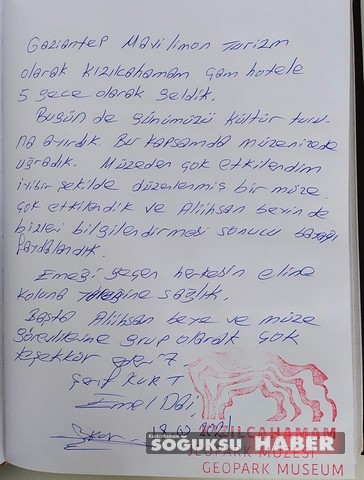 Gaziantep Mavilimon Turizm
olarak Kızılcahamam Çam hotele
5 gece olarak geldik.
Bugün de günümüzü kültür turu-
na ayırdık. Bu kapsamda müzenizede
uğradık. Müzeden çok etkilendim
iyi bir şekilde düzenlenmiş bir müze.
Çok etkilendik ve Aliihsan beyin de
bizleri bilgilendirmesi sonucu bayağı
faydalandık.
Emeği geçen herkesin eline
koluna yüreğine sağlık.
Başta Aliihsan beye ve müze
görevlilerine grup olarak çok
teşekkür ederiz
Şerif KURT
Emel
KIZILCAHAMAM
SOĞUKSU HABER
JEOPARK MÜZESİ
GEOPARK MUSEUM